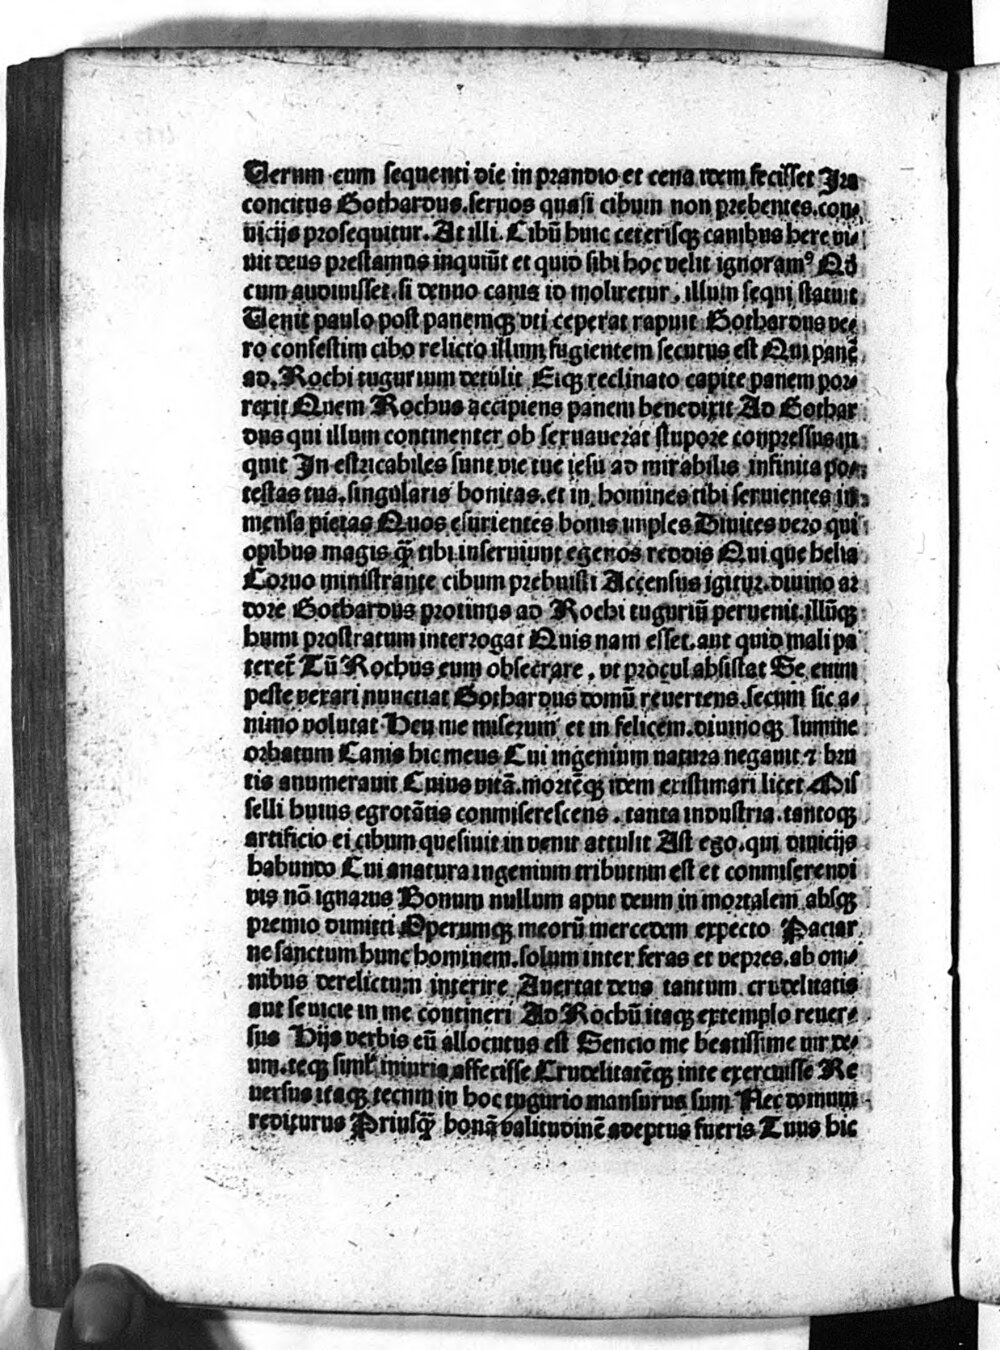 Uerum cum sequenti die in prandio et cena idem fecisset Ira
concitus Gothardus. seruos quasi cibum non prebentes. con⸗
uicijs prosequitur. At illi. Cibū huic ceterisq̨ canibus here vi⸗
uit deus prestamus inquiūt et quid sibi hoc velit ignoramꝰ Qd
cum audiuisset. si denuo canis id moliretur, illum sequi statuit
Uenit paulo post panemq̨ vti ceperat rapuit Gothardus ve⸗
ro confestim cibo relicto illum fugientem secutus est Qui panē
ad. Rochi tugurium detulit Eiq̨ reclinato capite panem por⸗
rexit Quem Rochus accipiens panem benedixit Ad Gothar
dus qui illum continenter ob seruauerat stupore conpressus in
quit In estricabiles sunt vie tue iesu ad mirabilis infinita po⸗
testas tua. singularis bonitas. et in homines tibi seruientes im⸗
mensa pietas Quos esurientes bonis imples Diuites vero qui
opibus magis q̄ tibi inseruiunt egenos reddis Qui que helia
Coruo ministrante cibum prebuisti Accensus igitur. diuino ar
dore Gothardus protinus ad Rochi tuguriū peruenit. illūq̨
humi prostratum interrogat Quis nam esset. aut quid mali pa
teret̄ Tū Rochus eum obsecrare, vt procul absistat Se enim
peste vexari nunctiat Gothardus domū reuertens. secum sic a⸗
nimo volutat Heu me miserum et in felicem. diuinoq̨ lumine
orbatum Canis hic meus Cui ingenium natura negauit ⁊ bru
tis anumerauit Cuius vitā. mortēq̨ idem existimari licet Mis
selli huius egrotātis conmiserescens. tanta industria. tantoq̨
artificio ei cibum quesiuit in uenit attulit Ast ego. qui diuicijs
habundo Cui anatura ingenium tributum est et conmiserendi
vis nō ignarus Bonum nullum aput deum in mortalem absq̨
premio dimitti Operumq̨ meorū mercedem expecto Paciar
ne sanctum hunc hominem. solum inter feras et vepres. ab om⸗
nibus derelictum interire Auertat deus tantum crudelitatis
aut seuicie in me contineri Ad Rochū itaq̨ extemplo reuer⸗
sus Hijs verbis eū allocutus est Sencio me beatissime vir de⸗
um. teq̨ siml̄ iniuria affecisse Crudelitatēq̨ inte exercuisse Re
uersus itaq̨ tecum in hoc tugurio mansurus sum Nec domum
rediturus Priusq̄ bonā valitudinē adeptus fueris Tuus hic